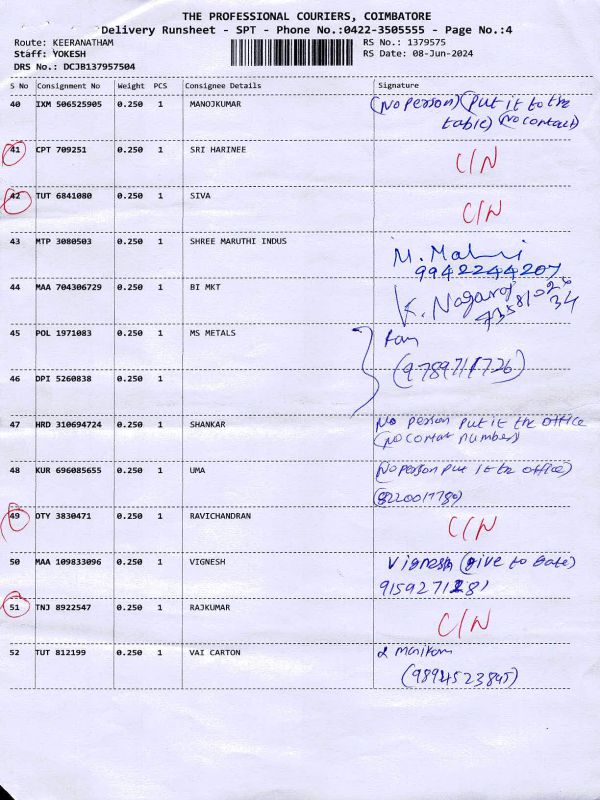 THE PROFESSIONAL COURIERS, COIMBATORE
Delivery Runsheet - SPT - Phone No.:0422-3505555 - Page No.:4
Route: KEERANATHAM RS No.: 1379575
Staff: YOKESH RS Date: 08-Jun-2024
DRS No.: DCJB137957504
S No Consignment No Weight PCS Consignee Details Signature
40 IXM 506525905 0.250 1 MANOJKUMAR (No person) (put it to the
table) (No contact)
41 CPT 709251 0.250 1 SRI HARINEE C/N
42 TUT 6841080 0.250 1 SIVA C/N
43 MTP 3080503 0.250 1 SHREE MARUTHI INDUS M.
9942244207
44 MAA 704306729 0.250 1 BI MKT K. Nagaraj
45 POL 1971083 0.250 1 MS METALS
46 DPI 5260838 0.250 1 (9789711726)
47 HRD 310694724 0.250 1 SHANKAR No person put it the office
(no contat number)
48 KUR 696085655 0.250 1 UMA (No person put it the office)
(8220017789)
49 DTY 3830471 0.250 1 RAVICHANDRAN C/N
50 MAA 109833096 0.250 1 VIGNESH Vignesh (give to Gate)
9159271281
51 TNJ 8922547 0.250 1 RAJKUMAR C/N
52 TUT 812199 0.250 1 VAI CARTON
(9894523845)